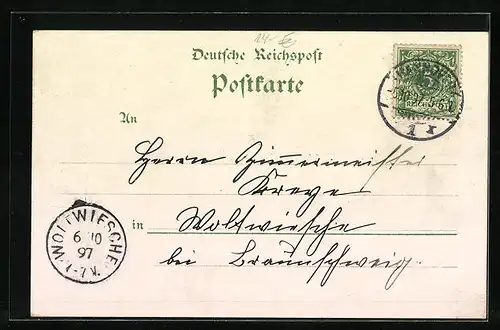 14.-€
Deutsche Reichspost
Postkarte
An
Herrn Zimmermeister
Kreye
in Woltwiesche
bei Braunschweig.
WOLTWIESCHE
6 10
97
7V.
5